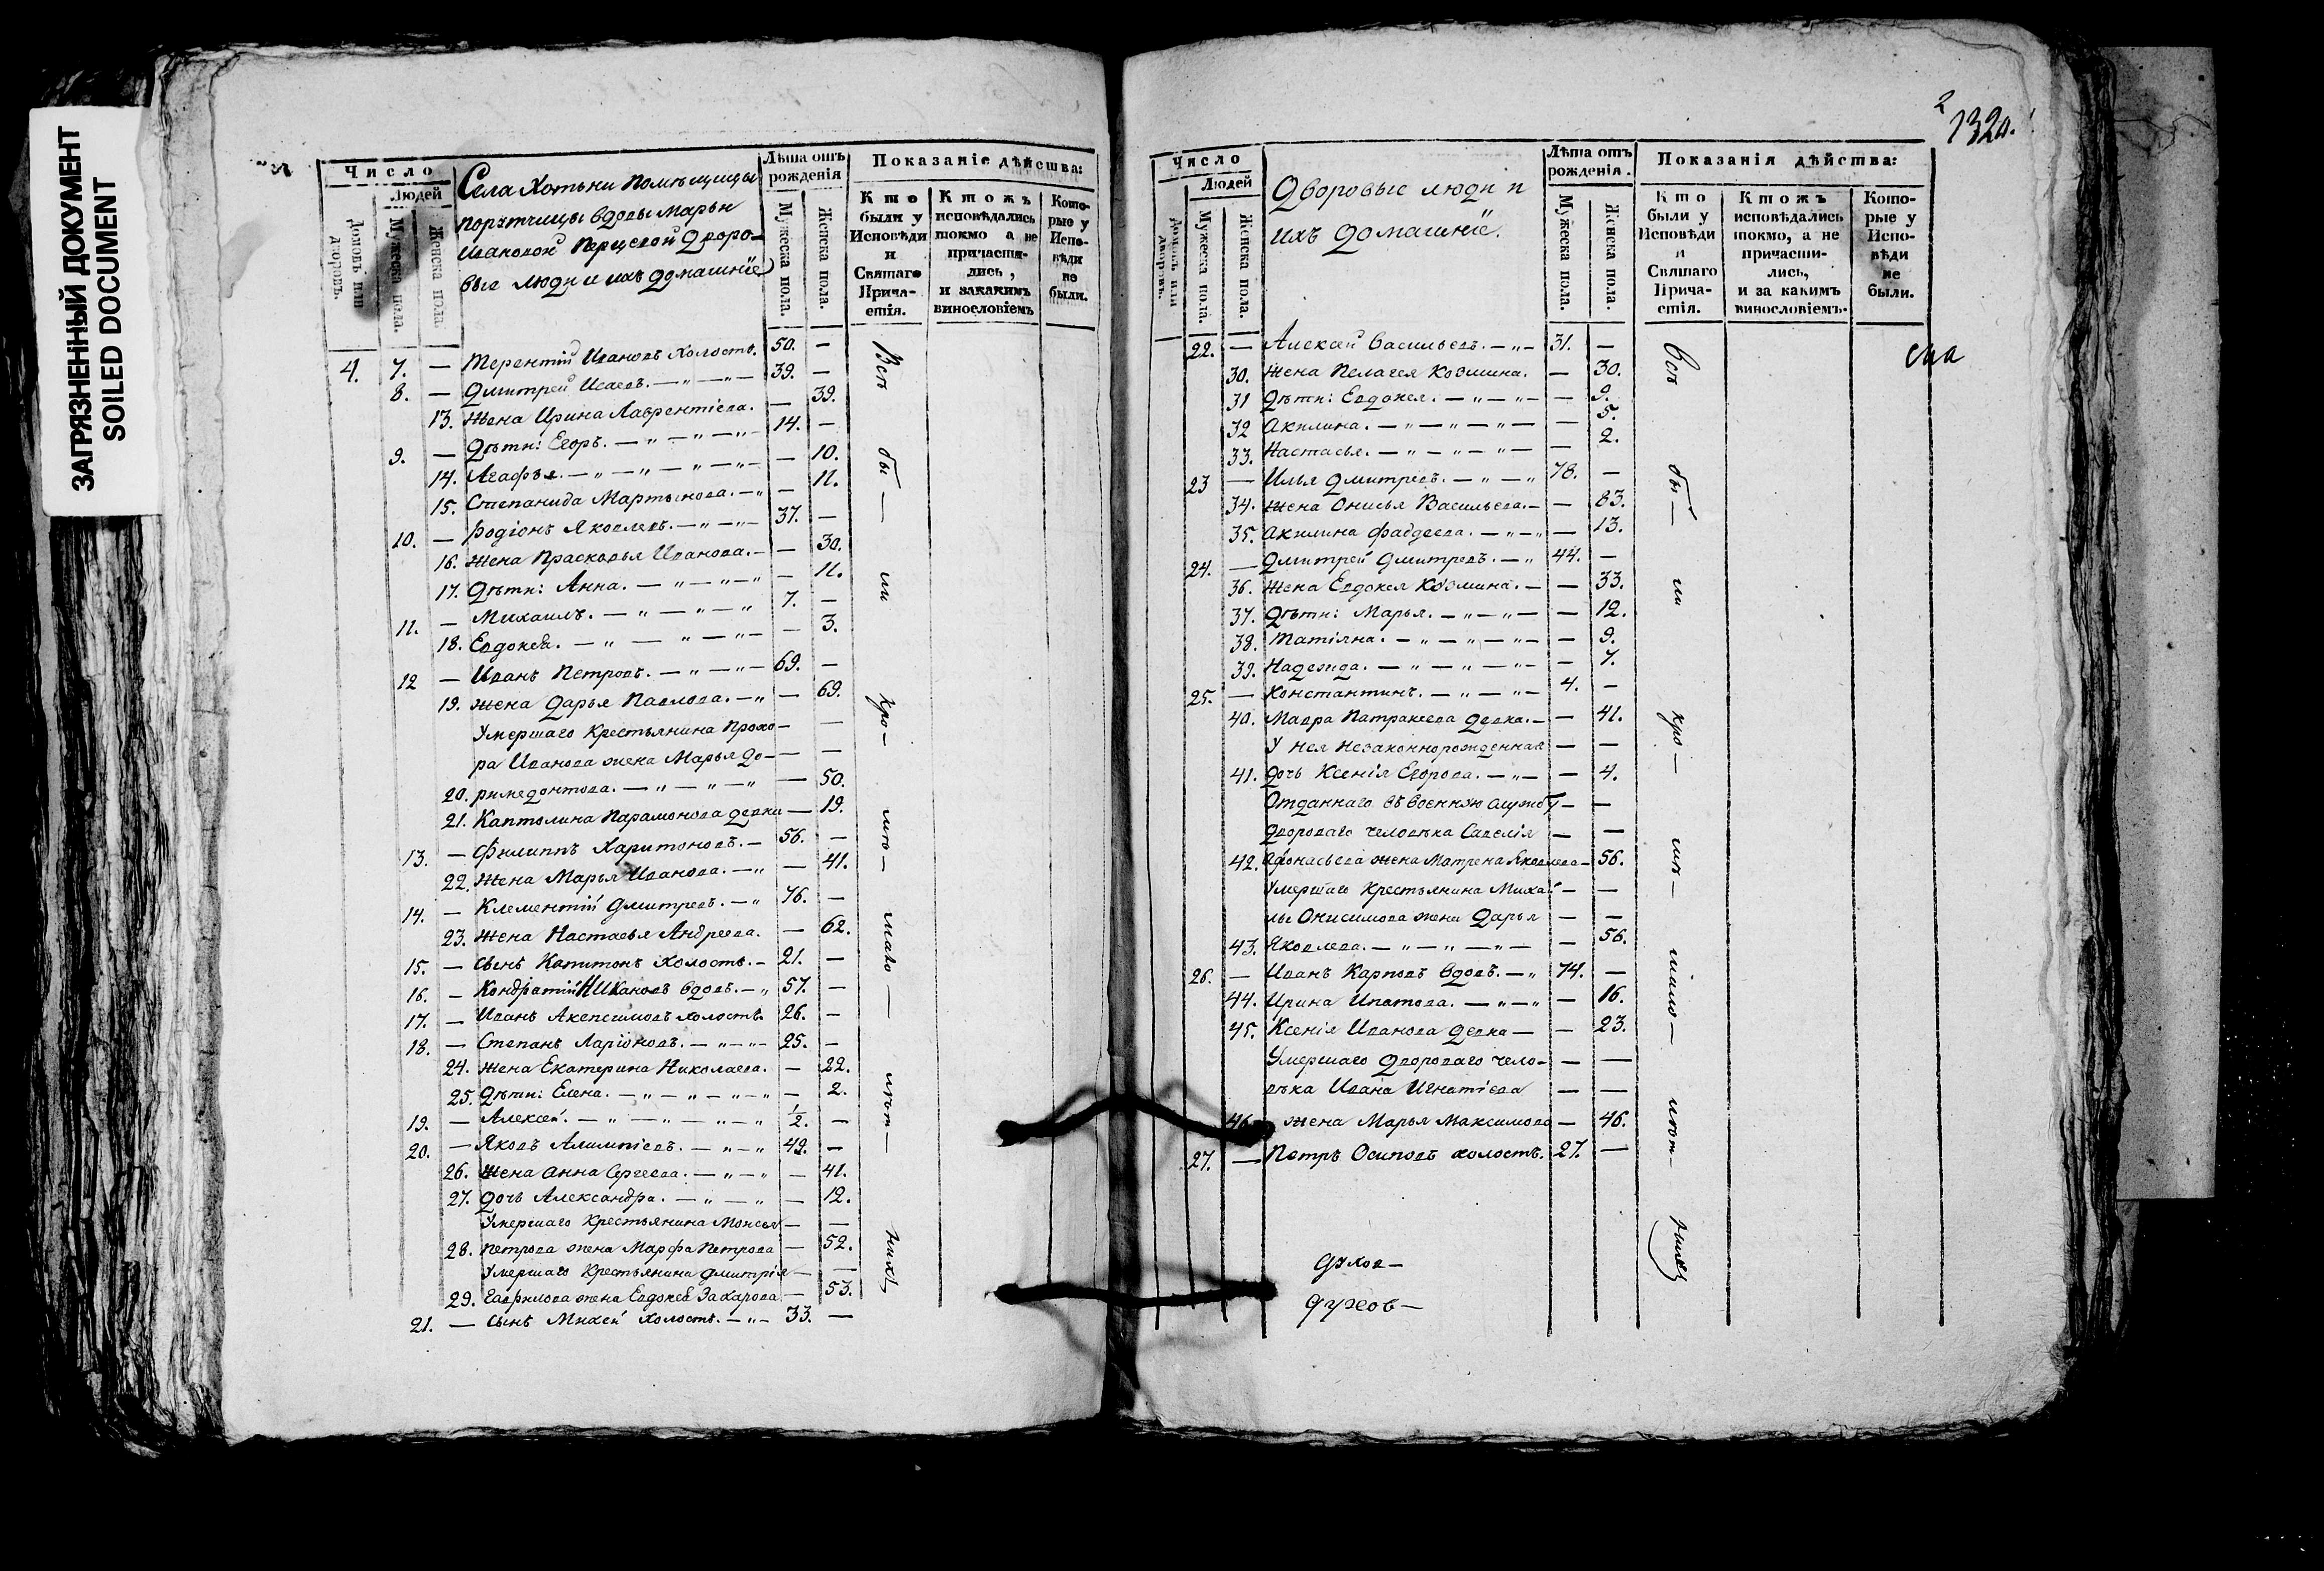 ЗАГРЯЗНЕННЫЙ ДОКУМЕНТ
SOILED DOCUMENT
Число
Людей
Домовъ или дворовъ.
Мужеска пола.
Женска пола.
Села Хотьни помѣщицы
порутчицы вдовы Марьи
Ивановой дворо-
вые люди и ихъ домашнїе
Лѣта отъ рождения
Мужеска пола.
Женска пола.
Показаніе дѣйства:
Кто были у Исповѣди и Святаго Прича-стія.
Ктожъ исповѣдались токмо а не причасти-лись, и закакимъ винословіемъ
Кото-рые у Испо-вѣди не были.
4. 7. — Терентій Ивановъ холостъ. 50. —
8. — Дмитрей Исаевъ. — „ — „ — 39. —
13. Жена Ирина Лаврентіева. — 39.
9. — Дѣти: Егоръ. — „ — „ — „ — 14. —
14. Агафья. — „ — „ — „ — „ — — 10.
15. Степанида Мартынова. — „ — 11.
10. — Родіонъ Яковлевъ. — „ — „ — 37. —
16. Жена Прасковья Иванова. — — 30.
17. Дѣти: Анна. — „ — „ — „ — 11.
11. — Михаилъ. — „ — „ — „ 7. —
18. Евдокея. — „ — „ — „ — — 3.
12 — Иванъ Петровъ. — „ — „ — 69. —
19. Жена Дарья Павлова. — „ — 69.
Умершаго Крестьянина Прохо — —
ра Иванова жена Марья До — —
20. римедонтова. — „ — „ — „ — 50.
21. Каптолина Парамонова девка — 19.
13. — Филиппъ Харитоновъ. — 56. —
22. Жена Марья Иванова. — „ — 41.
14. — Клементій Дмитревъ. — „ 76. —
23. Жена Настасья Андреева. — 62.
15. — Сынъ Капитонъ холостъ. — 21. —
16. — Кондратій Никановъ вдовъ. — „ 57. —
17. — Иванъ Акепсимовъ холостъ. 26. —
18. — Степанъ Ларіоновъ. — „ — „ — 25. —
24. Жена Екатерина Николаева. — 22.
25. Дѣти: Елена. — „ — „ — „ — „ — 2.
19. — Алексей. — „ — „ — „ — „ ½. —
20. — Яковъ Алимпіевъ. — „ — „ 49. —
26. Жена Анна Сергеева. — „ — „ — 41.
27. Дочь Александра. — „ — „ — 12.
Умершаго Крестьянина Моисея — —
28. Петрова жена Марфа Петрова — 52.
Умершаго Крестьянина Дмитрія — —
29. Гаврилова жена Евдокея Захарова — 53.
21. — Сынъ Михей холостъ. — „ — 33. —
Всѣ
бы —
ли
кро —
мѣ —
мало —
лѣт —
нихъ
2
1320.
Число
Людей
Домовъ или дворовъ.
Мужеска пола.
Женска пола.
Дворовые люди и
ихъ домашнїе.
Лѣта отъ рожденія.
Мужеска пола.
Женска пола.
Показанія дѣйства:
Кто были у Исповѣди и Святаго Прича-стія.
Ктожъ исповѣдались токмо, а не причасти-лись, и за какимъ винословіемъ.
Кото-рые у Испо-вѣди не были.
22. — Алексей Васильевъ. — „ — 31. —
30. Жена Пелагея Козмина. — 30.
31 Дѣти: Евдокея. — „ — „ — — 9.
32 Акилина. — „ — „ — „ — — 5.
33. Настасья. — „ — „ — „ — — 2.
23 — Илья Дмитревъ. — „ — „ 78. —
34. Жена Онисья Васильева. — — 83.
35. Акилина Фаддеева. — „ — „ — — 13.
24. — Дмитрей Дмитревъ. — „ 44. —
36. Жена Евдокея Козмина. — — 33.
37. Дѣти: Марья. — „ — „ — — 12.
38. Татіяна. — „ — „ — „ — — 9.
39. Надежда. — „ — „ — „ — — 7.
25. — Константинъ. — „ — „ — 4. —
40. Мавра Патракеева девка. — — 41.
У нея незаконнорожденная — —
41. дочь Ксенія Егорова. — „ — — 4.
Отданнаго въ военную службу — —
дворoваго человѣка Савелія — —
42. Афонасьева жена Матрена Яковлева — 56.
Умершаго Крестьянина Михай — —
лы Онисимова жена Дарья — —
43. Яковлева. — „ — „ — „ — — 56.
26. — Иванъ Карповъ вдовъ. — „ 74. —
44. Ирина Ипатова. — „ — „ — 16.
45. Ксенія Иванова девка — — 23.
Умершаго Двороваго чело — — —
вѣка Ивана Игнатіева — —
46. жена Марья Максимова — 46.
27. — Петръ Осиповъ холостъ. 27. —
Всѣ
бы —
ли
кро —
мѣ —
мало —
лѣт —
нихъ
Духов —